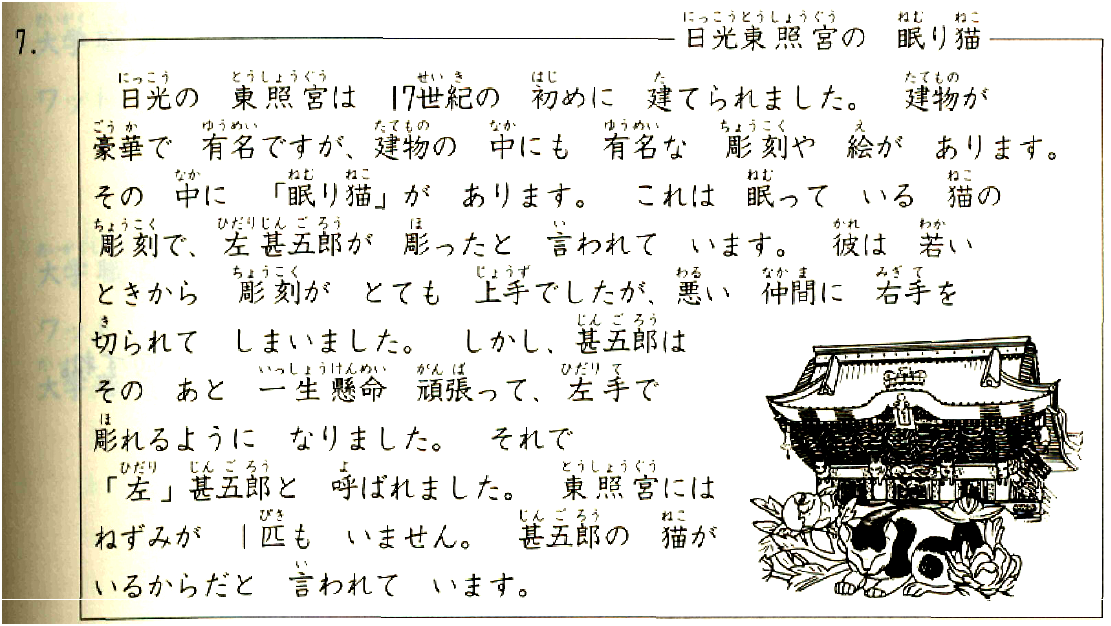 7.
日光東照宮の 眠り猫
日光の 東照宮は 17世紀の 初めに 建てられました。 建物が
豪華で 有名ですが、建物の 中にも 有名な 彫刻や 絵が あります。
その 中に 「眠り猫」が あります。 これは 眠って いる 猫の
彫刻で、左甚五郎が 彫ったと 言われて います。 彼は 若い
ときから 彫刻が とても 上手でしたが、悪い 仲間に 右手を
切られて しまいました。 しかし、甚五郎は
その あと 一生懸命 頑張って、左手で
彫れるように なりました。 それで
「左」甚五郎と 呼ばれました。 東照宮には
ねずみが 1匹も いません。 甚五郎の 猫が
いるからだと 言われて います。